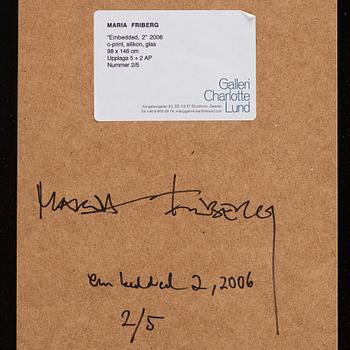 MARIA FRIBERG
"Embedded, 2" 2006
c-print, silikon, glas
98 x 146 cm
Upplaga 5 + 2 AP
Nummer 2/5
Galleri
Charlotte
Lund
MARIA FRIBERG
embedded 2, 2006
2/5